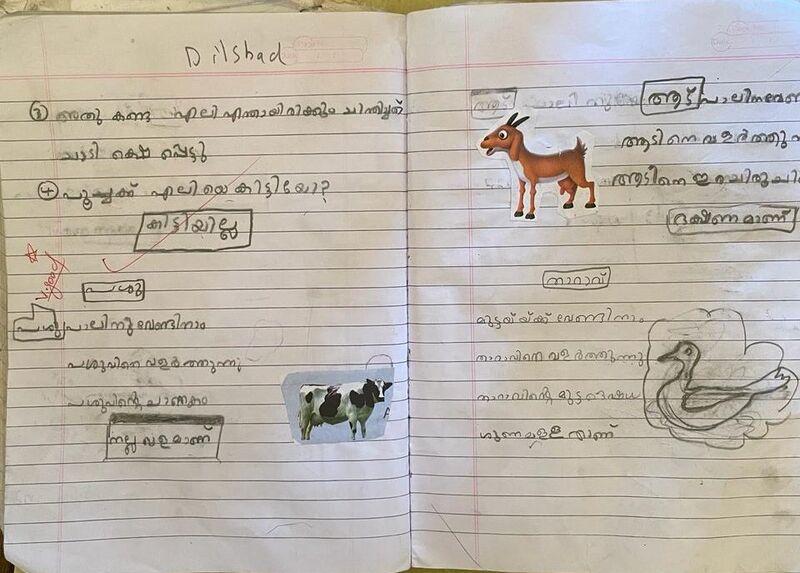 Dilshad
③ അതു കണ്ട എലി എന്തായിരിക്കും ചിന്തിച്ചത്
ചാടി രക്ഷപ്പെട്ടു
④ പൂച്ചക്ക് എലിയെ കിട്ടിയോ?
കിട്ടിയില്ല
പശു
പശു പാലിനു വേണ്ടിനാം
പശുവിനെ വളർത്തുന്നു
പശുവിന്റെ ചാണകം
നല്ല വളമാണ്
ആട്
ആട് പാലിന
ആടിനെ വളർത്തു
ആടിനെ ഇറച്ചി
ഭക്ഷണമാണ്
താറാവ്
മുട്ടയ്ക്ക് വേണ്ടിനാം
താറാവിനെ വളർത്തുന്നു
താറാവിന്റെ മുട്ട
ഗുണമുള്ളതാണ്